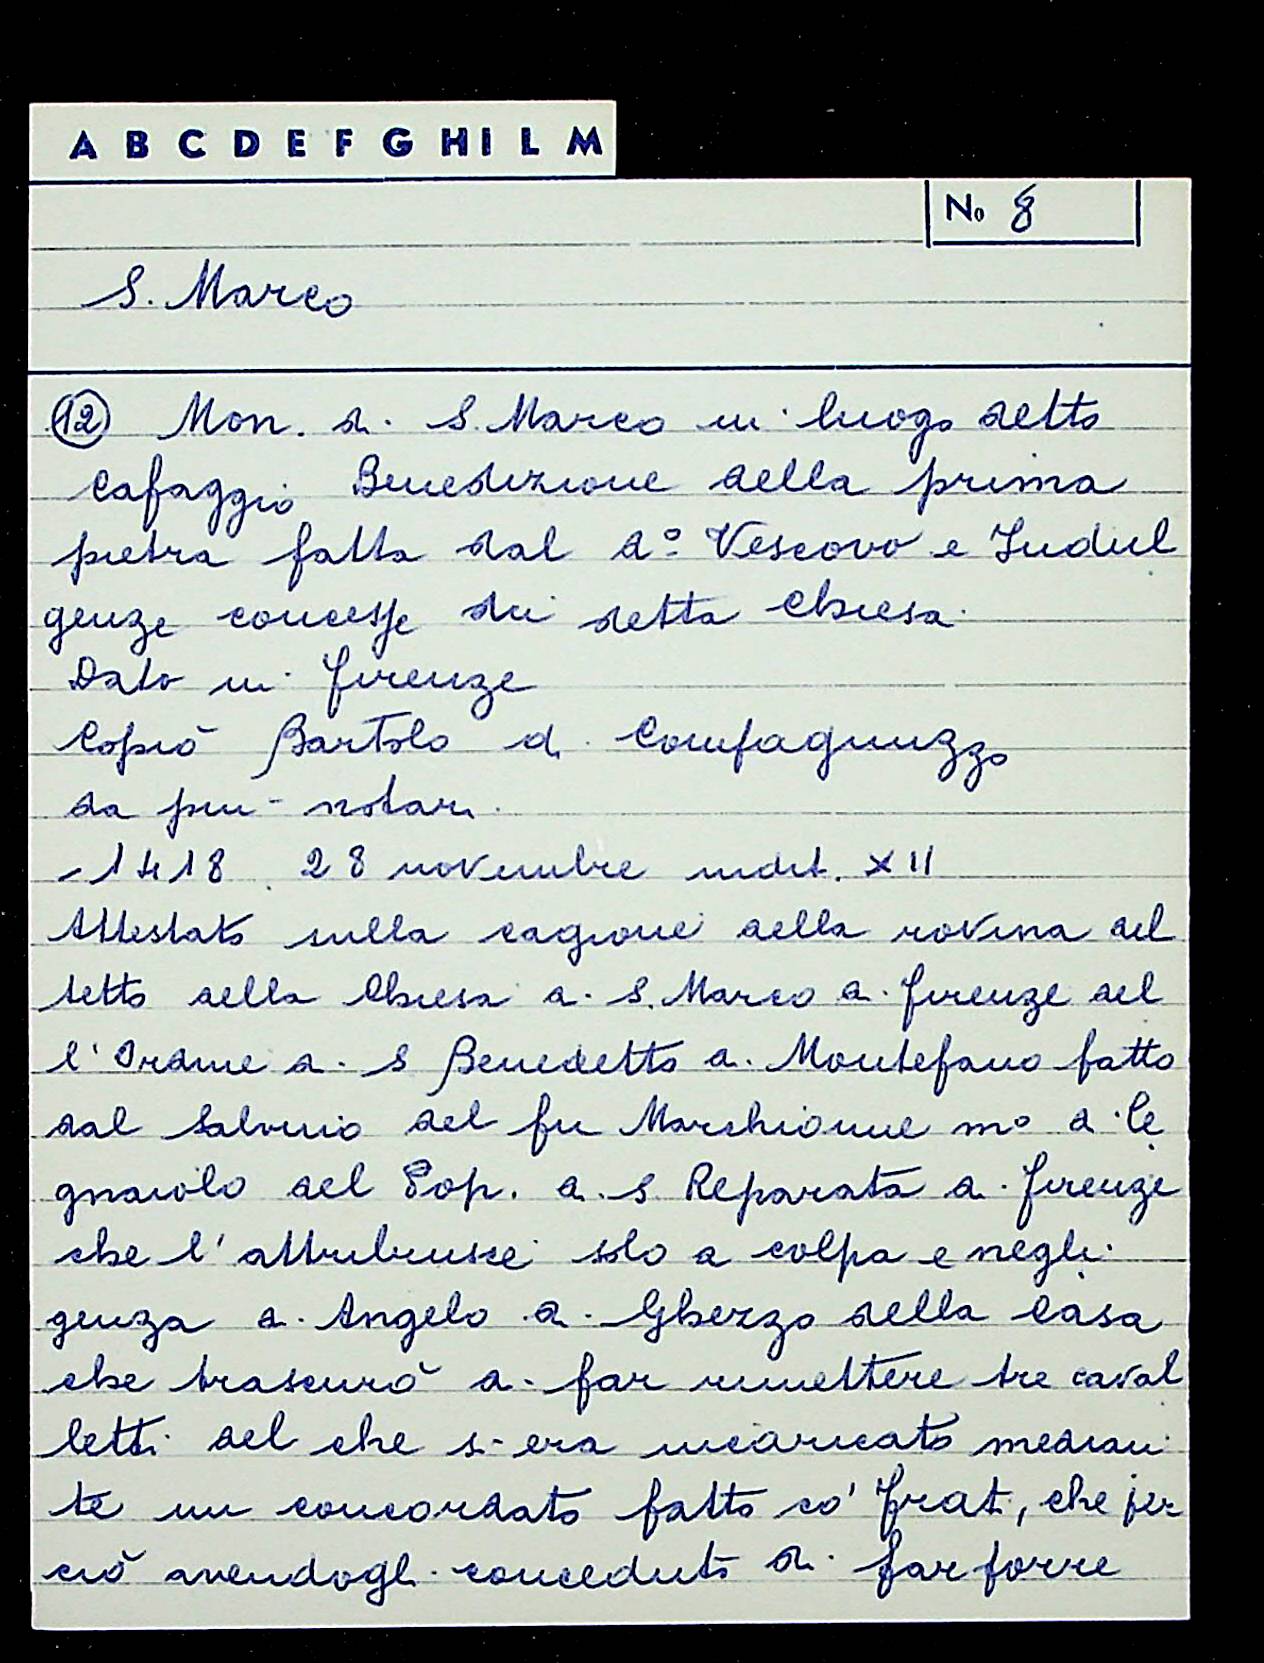 A B C D E F G H I L M
No 8
S. Marco
12 Mon. di S. Marco in luogo detto
Cafaggio Benedizione della prima
pietra fatta dal do Vescovo e Indul
genze concesse di detta Chiesa.
Dato in Firenze
Copiò Bartolo di Compagnuzzo
da piu notari.
- 1418 28 novembre indit. XII
Attestato sulla cagione della rovina del
tetto della Chiesa di S. Marco di Firenze del
l'Ordine di S Benedetto di Montefano fatto
dal Salvino del fu Marchionne mo di le
gnaiolo del Pop. di S Reparata di Firenze
che l'attribuisce solo a colpa e negli
genza di Angelo di Gherzo della Casa
che trascurò di far rimettere tre caval
letti del che s'era incaricato median
te un concordato fatto co' Frati, che per
ciò avendogli conceduto di far porre